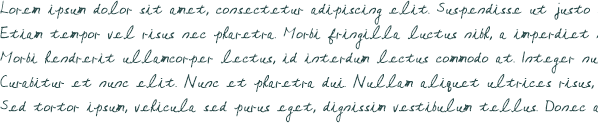 Lorem ipsum dolor sit amet, consectetur adipiscing elit. Suspendisse ut justo
Etiam tempor vel risus nec pharetra. Morbi fringilla luctus nibh, a imperdiet
Morbi hendrerit ullamcorper lectus, id interdum lectus commodo at. Integer nu
Curabitur et nunc elit. Nunc et pharetra dui. Nullam aliquet ultrices risus,
Sed tortor ipsum, vehicula sed purus eget, dignissim vestibulum tellus. Donec a